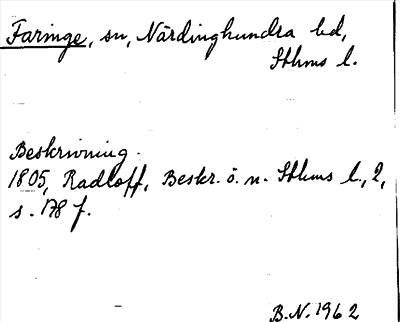 Faringe, sn, Närdinghundra hd,
Sthms l.
Beskrivning.
1805, Radloff, Beskr. ö. n. Sthms l., 2,
s. 178 f.
B.N. 1962